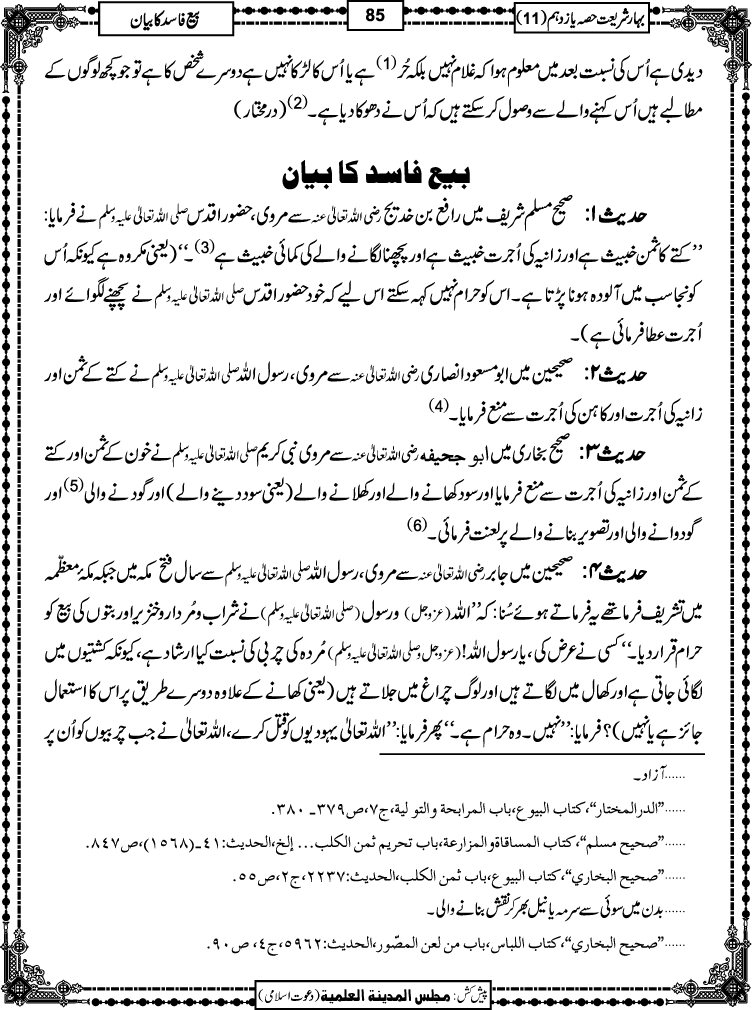 بہار شریعت حصہ یازدہم (11)
85
بیع فاسد کا بیان
دیدی ہے اُس کی نسبت بعد میں معلوم ہوا کہ غلام نہیں بلکہ حُر (1) ہے یا اُس کا لڑکا نہیں ہے دوسرے شخص کا ہے تو جو کچھ لوگوں کے
مطالبے ہیں اُس کہنے والے سے وصول کر سکتے ہیں کہ اُس نے دھوکا دیا ہے۔(2) (درمختار)
بیع فاسد کا بیان
حدیث ۱: صحیح مسلم شریف میں رافع بن خدیج رضی اللہ تعالیٰ عنہ سے مروی، حضور اقدس صلی اللہ تعالیٰ علیہ وسلم نے فرمایا:
’’کتے کا ثمن خبیث ہے اور زانیہ کی اُجرت خبیث ہے اور پچھنا لگانے والے کی کمائی خبیث ہے (3)۔‘‘ (یعنی مکروہ ہے کیونکہ اُس
کو نجاست میں آلودہ ہونا پڑتا ہے۔ اس کو حرام نہیں کہہ سکتے اس لیے کہ خود حضور اقدس صلی اللہ تعالیٰ علیہ وسلم نے پچھنے لگوائے اور
اُجرت عطا فرمائی ہے)۔
حدیث ۲: صحیحین میں ابو مسعود انصاری رضی اللہ تعالیٰ عنہ سے مروی، رسول اللہ صلی اللہ تعالیٰ علیہ وسلم نے کتے کے ثمن اور
زانیہ کی اُجرت اور کاہن کی اُجرت سے منع فرمایا۔(4)
حدیث ۳: صحیح بخاری میں ابو جحیفه رضی اللہ تعالیٰ عنہ سے مروی نبی کریم صلی اللہ تعالیٰ علیہ وسلم نے خون کے ثمن اور کتے
کے ثمن اور زانیہ کی اُجرت سے منع فرمایا اور سود کھانے والے اور کھلانے والے (یعنی سود دینے والے) اور گودنے والی (5) اور
گودوانے والی اور تصویر بنانے والے پر لعنت فرمائی۔(6)
حدیث ۴: صحیحین میں جابر رضی اللہ تعالیٰ عنہ سے مروی، رسول اللہ صلی اللہ تعالیٰ علیہ وسلم سے سال فتح مکہ میں جبکہ مکۂ معظّمہ
میں تشریف فرما تھے یہ فرماتے ہوئے سُنا: کہ ’’اللہ (عزوجل) و رسول (صلی اللہ تعالیٰ علیہ وسلم) نے شراب و مُردار و خنزیر اور بتوں کی بیع کو
حرام قرار دیا۔‘‘ کسی نے عرض کی، یا رسول اللہ! (عزوجل وصلی اللہ تعالیٰ علیہ وسلم) مُردہ کی چربی کی نسبت کیا ارشاد ہے، کیونکہ کشتیوں میں
لگائی جاتی ہے اور کھال میں لگاتے ہیں اور لوگ چراغ میں جلاتے ہیں (یعنی کھانے کے علاوہ دوسرے طریق پر اس کا استعمال
جائز ہے یا نہیں)؟ فرمایا: ’’نہیں۔ وہ حرام ہے۔‘‘ پھر فرمایا: ’’اللہ تعالیٰ یہودیوں کو قتل کرے، اللہ تعالیٰ نے جب چربیوں کو اُن پر
......آزاد۔
......"الدرالمختار"، کتاب البیوع، باب المرابحة والتولیة، ج۷، ص۳۷۹۔۳۸۰.
......"صحیح مسلم"، کتاب المساقاة والمزارعة، باب تحریم ثمن الکلب... إلخ، الحدیث: ۴۱۔(۱۵۶۸)، ص۸۴۷.
......"صحیح البخاري"، کتاب البیوع، باب ثمن الکلب، الحدیث: ۲۲۳۷، ج۲، ص۵۵.
......بدن میں سوئی سے سرمہ یا نیل بھر کر نقش بنانے والی۔
......"صحیح البخاري"، کتاب اللباس، باب من لعن المصّور، الحدیث: ۵۹۶۲، ج۴، ص۹۰.
پیش کش: مجلس المدینة العلمیة (دعوت اسلامی)